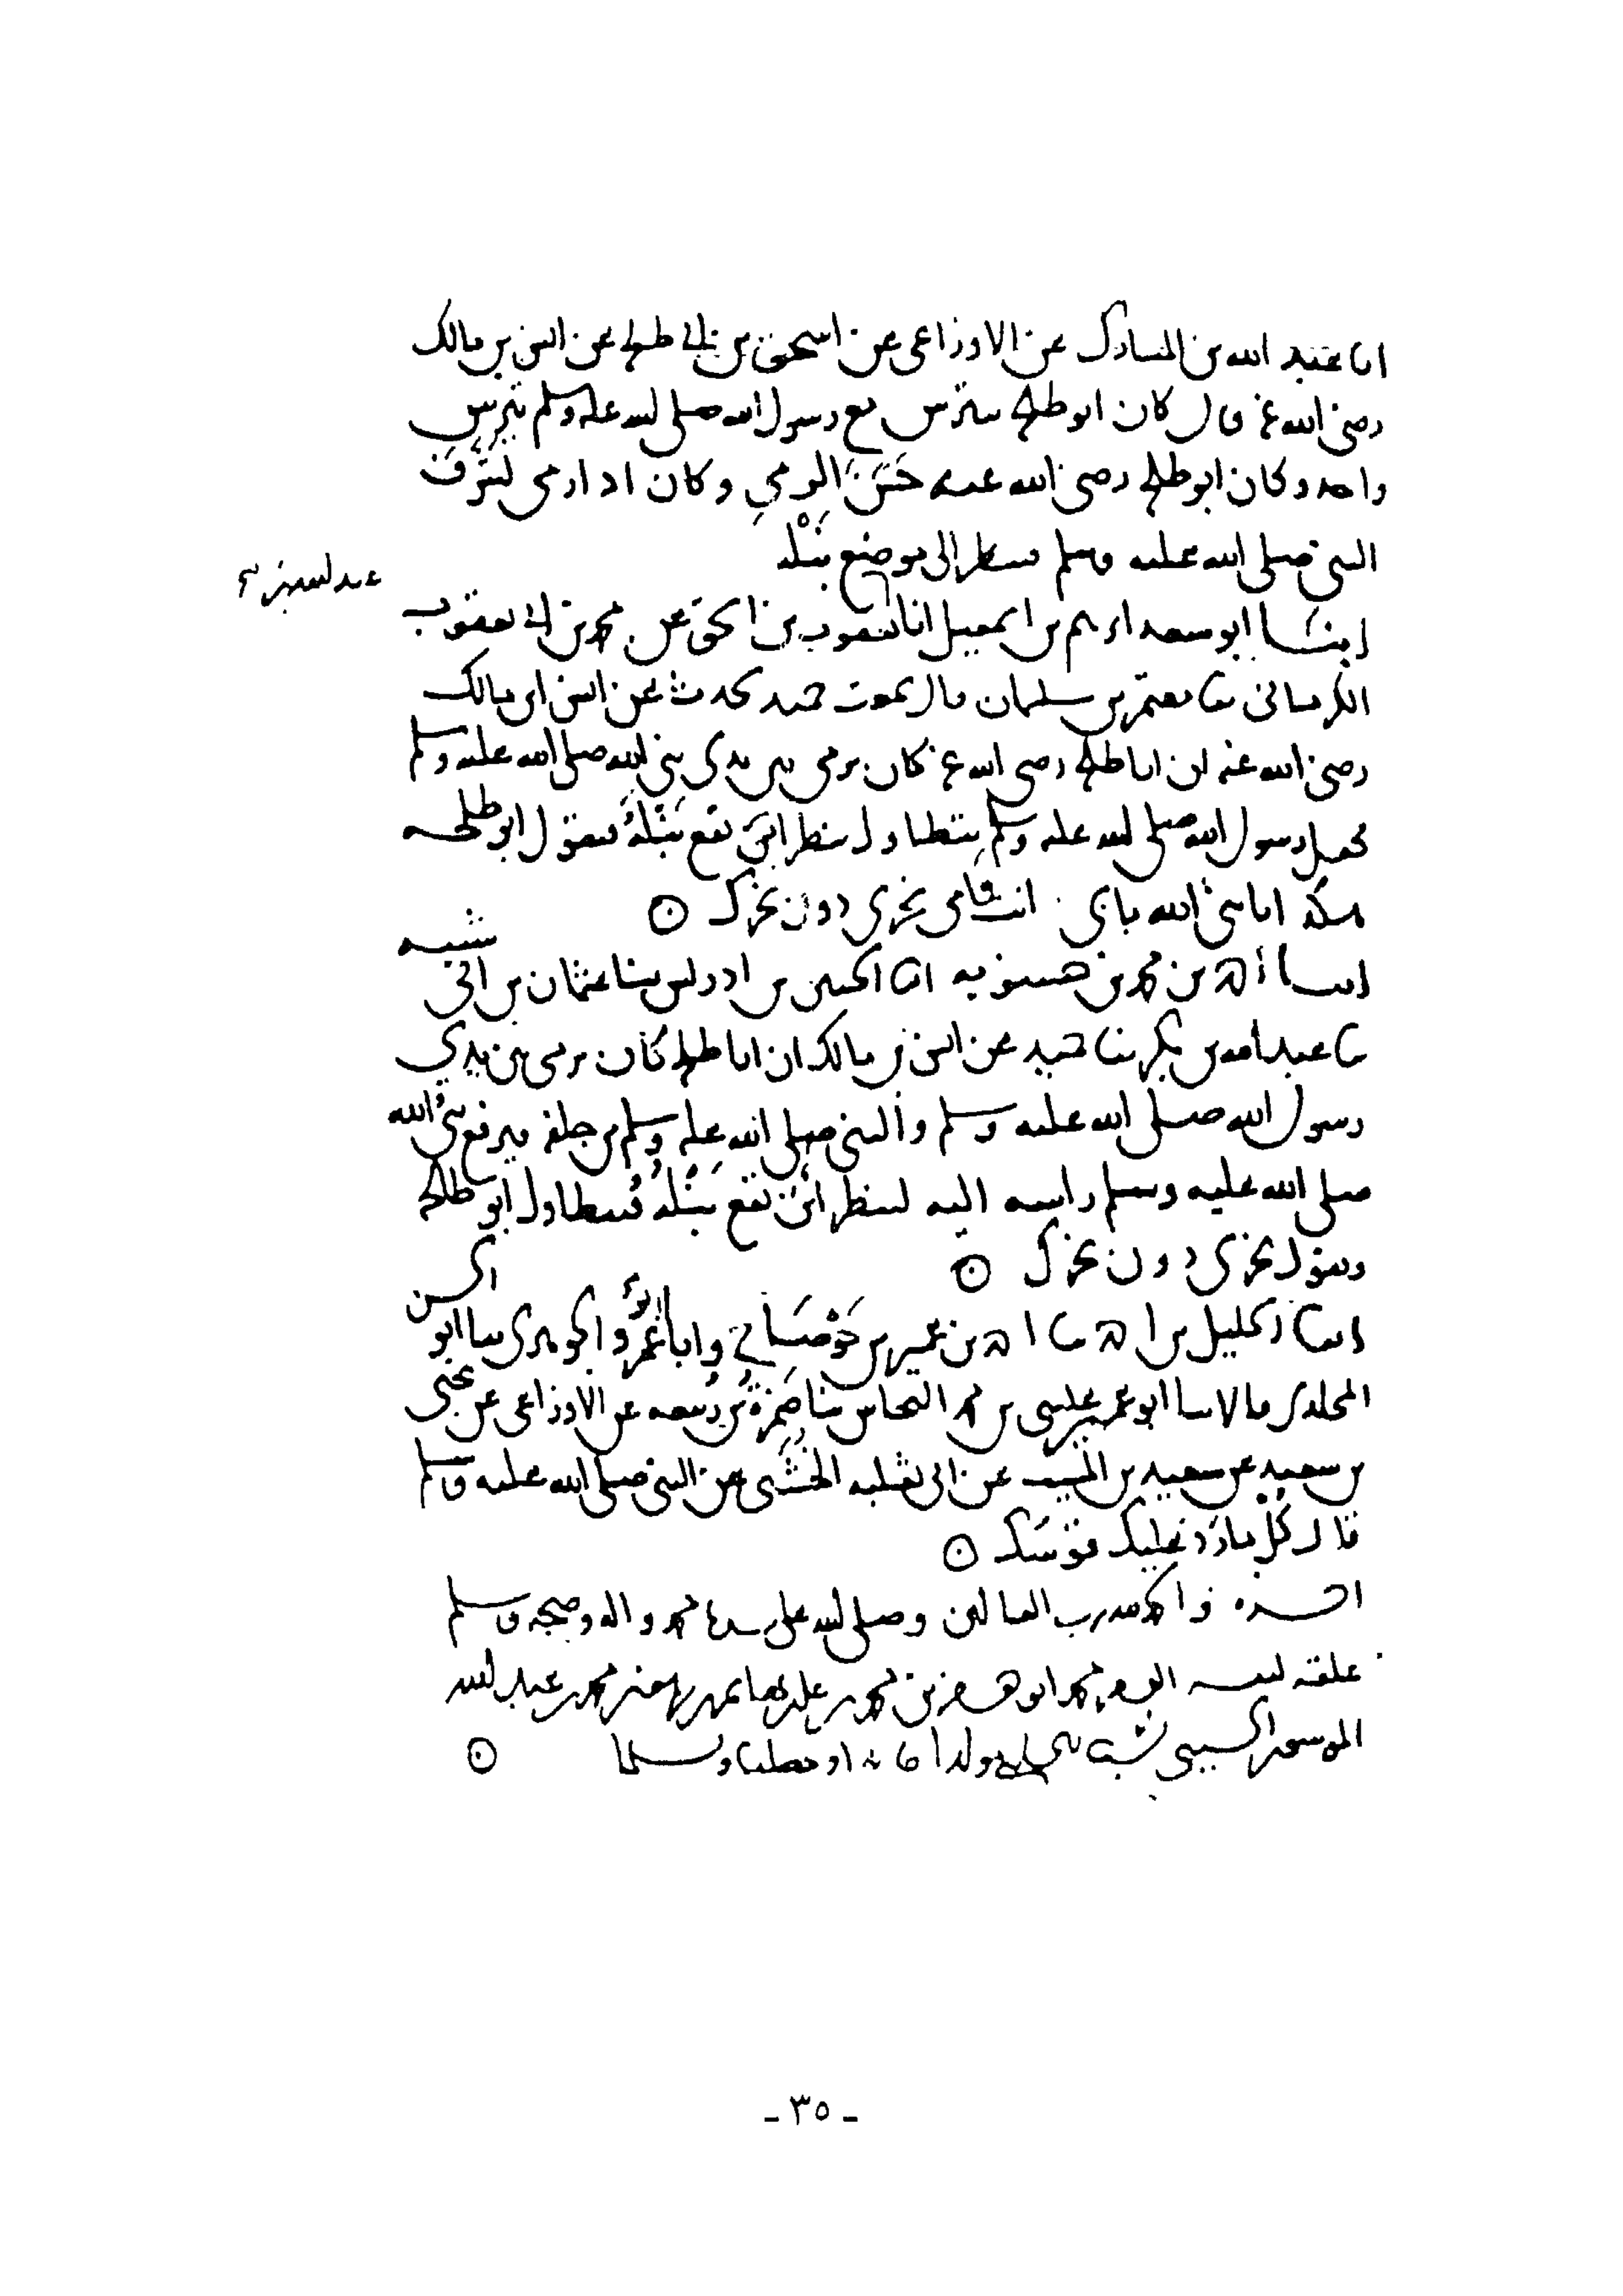 انا عبد الله بن المبارك عن الاوزاعي عن اسحق بن ابي طلحة عن انس بن مالك
رضي الله عنه قال كان ابو طلحة يتترس مع رسول الله صلى الله عليه وسلم بترس
واحد وكان ابو طلحة رضي الله عنه حَسَنَ الرمي وكان اذا رمى تشرف
النبي صلى الله عليه وسلم فينظر الى موضع نَبْله
انبا ابو سعد ابرهيم بن اسمعيل انا يعقوب بن اسحق عن محمد بن ابي يعقوب
الكرماني ثنا معتمر بن سليمان قال سمعت حميد يحدث عن انس ابن مالك
رضي الله عنه ان ابا طلحة رضي الله عنه كان يرمي بين يدي نبي الله صلى الله عليه وسلم
فجعل رسول الله صلى الله عليه وسلم يتطاول ينظر اين تقع نَبْلُهُ فيقول ابو طلحه
هكذا يا نبي الله بابي انت وامي نحري دون نحرك
شيبه
انبا احمد بن محمد بن حسنويه انا الحسين بن ادريس ثنا عثمان بن ابي
ثنا عبد الله بن بكر ثنا حميد عن انس بن مالك ان ابا طلحة كان يرمي بين يدي
رسول الله صلى الله عليه وسلم والنبي صلى الله عليه وسلم من خلفه فيرفع نبي الله
صلى الله عليه وسلم راسه اليه لينظر اين تقع نَبْلُهُ فيتطاول ابو طلحة
ويقول نحري دون نحرك
الحسن
انبا الخليل بن احمد ثنا احمد بن عمير بن جَوْصَا ح وانبا ابو عمرو الجوهري ثنا ابو
المخلدي قالا ثنا ابو عمير عيسى بن محمد النحاس ثنا ضَمْرَة بن ربيعه عن الاوزاعي عن يحيى
بن سعيد عن سعيد بن المسيب عن ابي ثعلبه الخُشَني عن النبي صلى الله عليه وسلم
قال كُلْ ما رَدَّ عليك قوسُك
اخره والحمد لله رب العالمين وصلى الله على سيدنا محمد واله وصحبه وسلم
علقه لنفسه محمد بن محمد بن محمد بن عبد الله